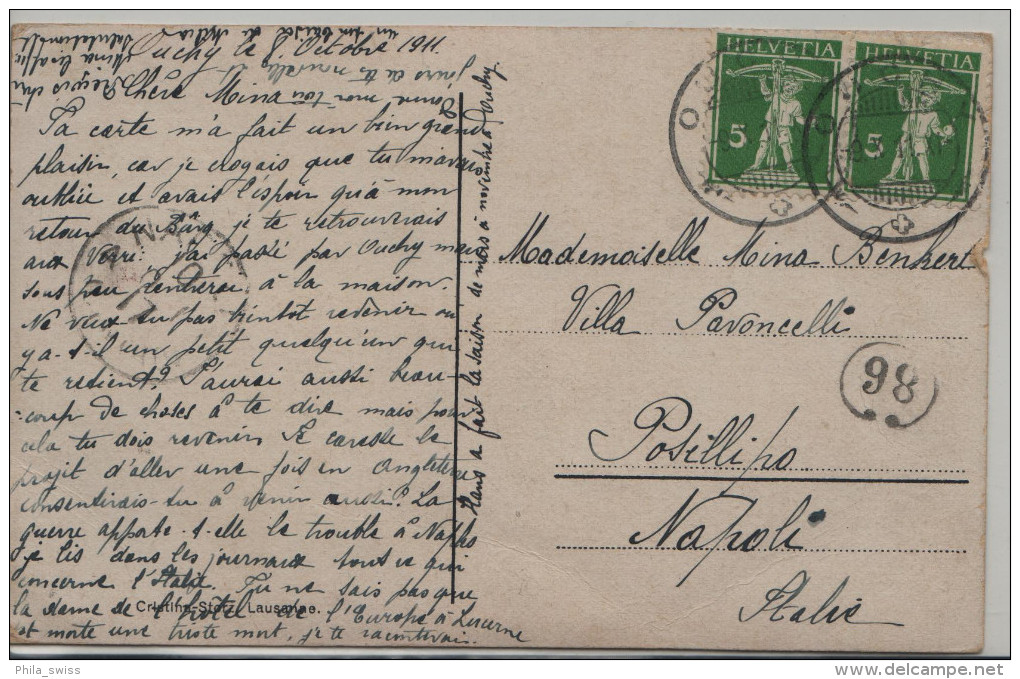 Ouchy le 8 Octobre 1911.
Chère Mina
Ta carte m'a fait un bien grand
plaisir, car je croyais que tu m'avais
oubliée et avais l'espoir qu'à mon
retour du Bürg je te retrouverais
aux Verri: j'ai passé par Ouchy mais
sous peu rentrerai à la maison.
Ne veux tu pas bientôt revenir ou
y a-t-il un petit quelqu'un qui
te retient? J'aurai aussi beau-
coup de choses à te dire mais pour
cela tu dois revenir. Je caresse le
projet d'aller une fois en Angleterre
consentirais-tu à venir aussi? La
guerre apporte-t-elle le trouble à Naples
je lis dans les journaux tout ce qui
concerne l'Italie. Tu ne sais pas que
la dame de l'hôtel de l'Europe à Lucerne
est morte une triste mort, je te raconterais.
Cristina-Storz, Lausanne.
Hans a fait la saison de mars à novembre à Ouchy.
donne moi ton
jours de te nouvelle et
un bon baiser de
HELVETIA
5
HELVETIA
5
Mademoiselle Mina Benkert
Villa Pavoncelli
Posillipo
Napoli
Italie
98
Phila_swiss